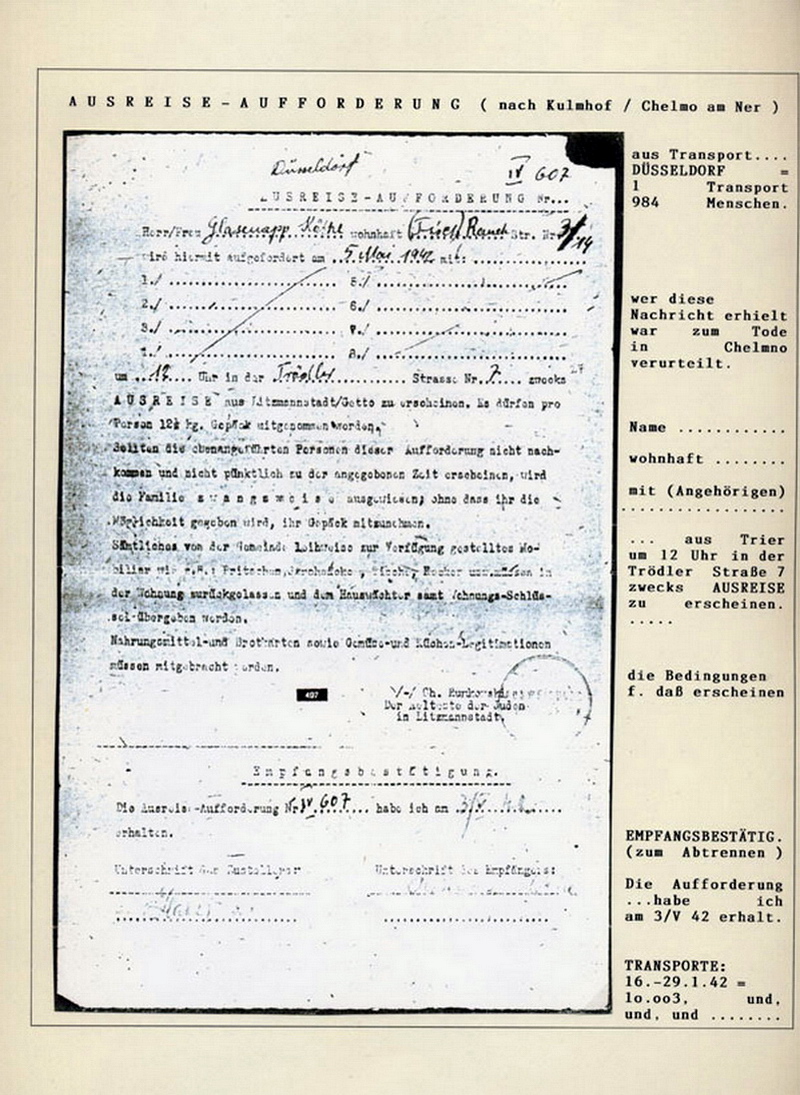 AUSREISE-AUFFORDERUNG ( nach Kulmhof / Chelmo am Ner )
Düsseldorf
IV 607
AUSREISE-AUFFORDERUNG Nr...
Herr/Frau Glasenapp, Käthe wohnhaft Str. Nr
wird hiermit aufgefordert am ..5. Mai 1942 mit: ................
1./ .................... 5./ ....................
2./ .................... 6./ ....................
3./ .................... 7./ ....................
4./ .................... 8./ ....................
um ..12.... Uhr in der Trödler............ Strasse Nr.7.... zwecks
AUSREISE aus Litzmannstadt/Getto zu erscheinen. Es dürfen pro
Person 12½ kg. Gepäck mitgenommen werden.
Sollten die obenangeführten Personen dieser Aufforderung nicht nach-
kommen und nicht pünktlich zu der angegebenen Zeit erscheinen, wird
die Familie zwangsweise ausgewiesen; ohne dass ihr die
Möglichkeit gegeben wird, ihr Gepäck mitzunehmen.
Sämtliches von der Gemeinde leihweise zur Verfügung gestelltes Mo-
biliar wie z.B.: Pritschen, Tische, müssen in
der Wohnung zurückgelassen und dem Hauswächter samt Wohnungs-Schlüs-
sel übergeben werden.
Nahrungsmittel-und Brotkarten sowie Gemüse-und Küchen-Legitimationen
müssen mitgebracht werden.
497
/-/ Ch. Rumkowski
Der Aelteste der Juden
in Litzmannstadt
Empfangsbestätigung.
Die Ausreise-Aufforderung Nr. IV 607... habe ich am 3/V 42......
erhalten.
Unterschrift des Zustellers: Unterschrift des Empfängers:
aus Transport....
DÜSSELDORF =
1 Transport
984 Menschen.
wer diese
Nachricht erhielt
war zum Tode
in Chelmno
verurteilt.
Name ............
wohnhaft ........
mit (Angehörigen)
.................
... aus Trier
um 12 Uhr in der
Trödler Straße 7
zwecks AUSREISE
zu erscheinen.
.....
die Bedingungen
f. daß erscheinen
EMPFANGSBESTÄTIG.
(zum Abtrennen )
Die Aufforderung
...habe ich
am 3/V 42 erhalt.
TRANSPORTE:
16.-29.1.42 =
1o.oo3, und,
und, und ........